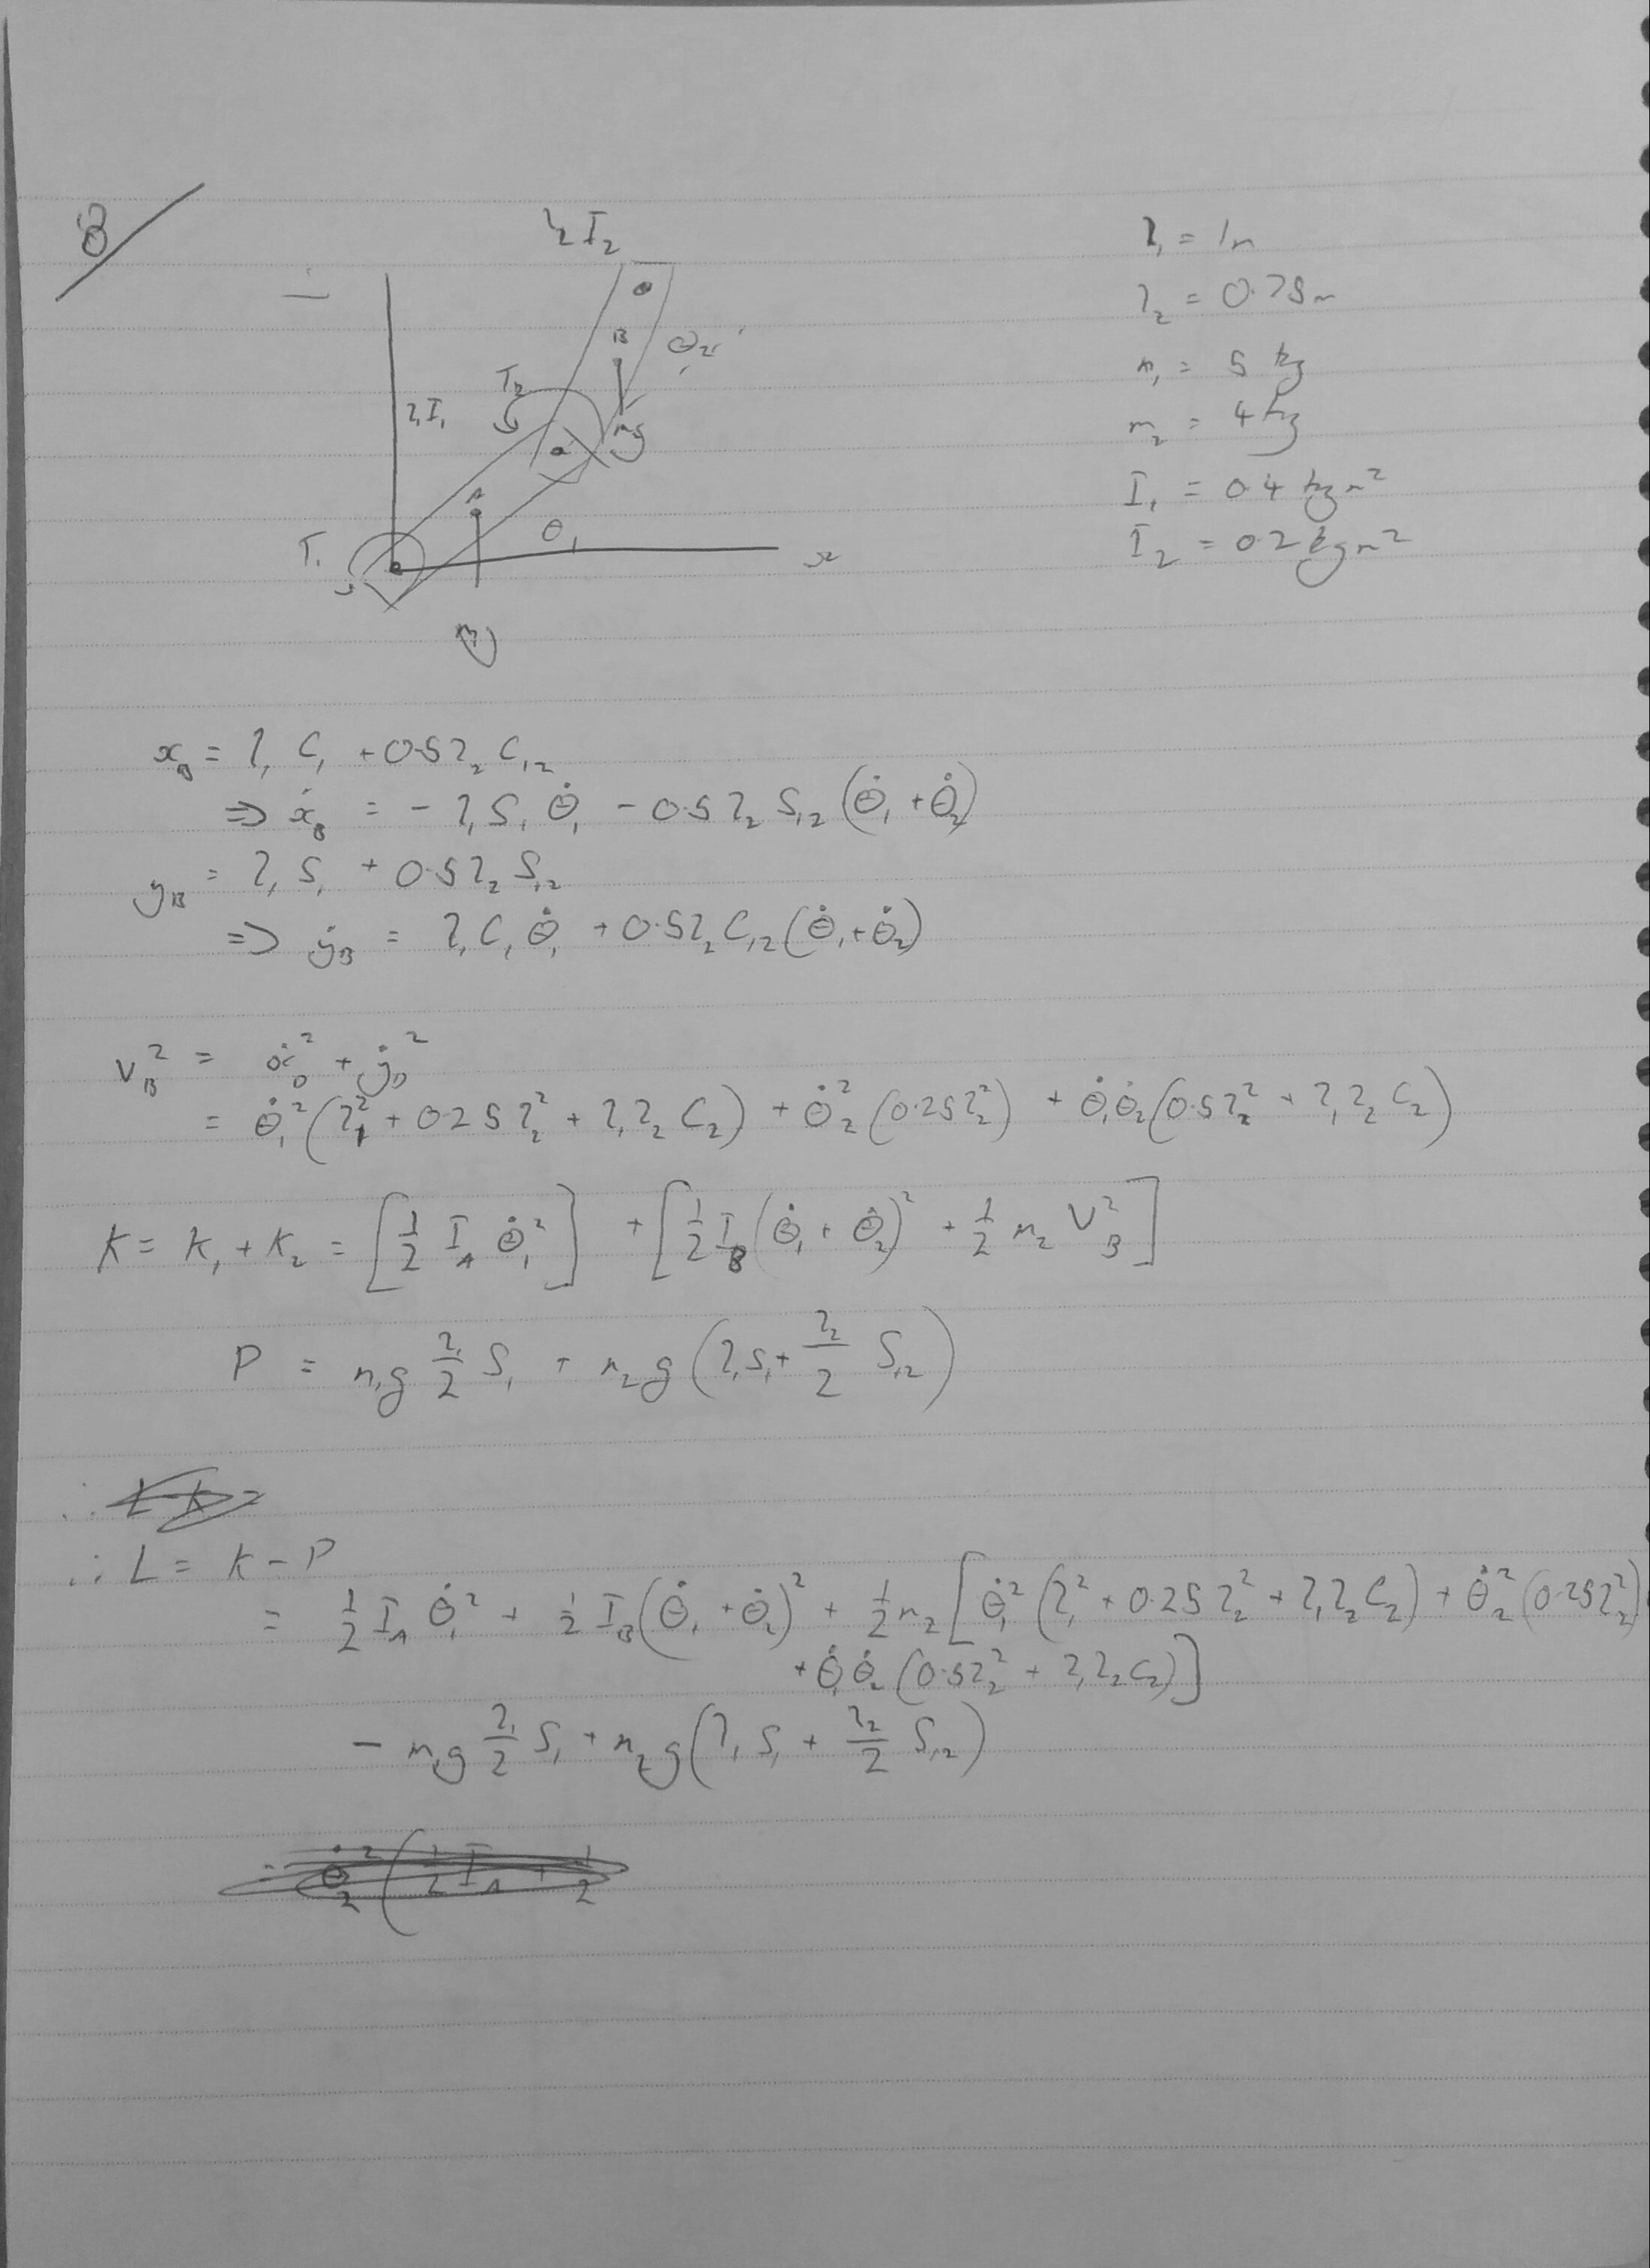 8
l₂ I₂
l₁ = 1m
l₂ = 0.75m
m₁ = 5 kg
m₂ = 4 kg
I₁ = 0.4 kgm²
I₂ = 0.2 kgm²
B
θ₂
T₂
l₁ I₁
mg
A
θ₁
T₁
x
x_B = l₁ C₁ + 0.5 l₂ C₁₂
⇒ ẋ_B = - l₁ S₁ θ̇₁ - 0.5 l₂ S₁₂ (θ̇₁ + θ̇₂)
y_B = l₁ S₁ + 0.5 l₂ S₁₂
⇒ ẏ_B = l₁ C₁ θ̇₁ + 0.5 l₂ C₁₂ (θ̇₁ + θ̇₂)
V_B² = ẋ_B² + ẏ_B²
= θ̇₁² (l₁² + 0.25 l₂² + l₁ l₂ C₂) + θ̇₂² (0.25 l₂²) + θ̇₁ θ̇₂ (0.5 l₂² + l₁ l₂ C₂)
K = K₁ + K₂ = [½ I_A θ̇₁²] + [½ I_B (θ̇₁ + θ̇₂)² + ½ m₂ V_B²]
P = m₁g l₁/2 S₁ + m₂g (l₁ S₁ + l₂/2 S₁₂)
∴ L = K - P
= ½ I_A θ̇₁² + ½ I_B (θ̇₁ + θ̇₂)² + ½ m₂ [θ̇₁² (l₁² + 0.25 l₂² + l₁ l₂ C₂) + θ̇₂² (0.25 l₂²)
+ θ̇₁ θ̇₂ (0.5 l₂² + l₁ l₂ C₂)]
- m₁g l₁/2 S₁ + m₂g (l₁ S₁ + l₂/2 S₁₂)